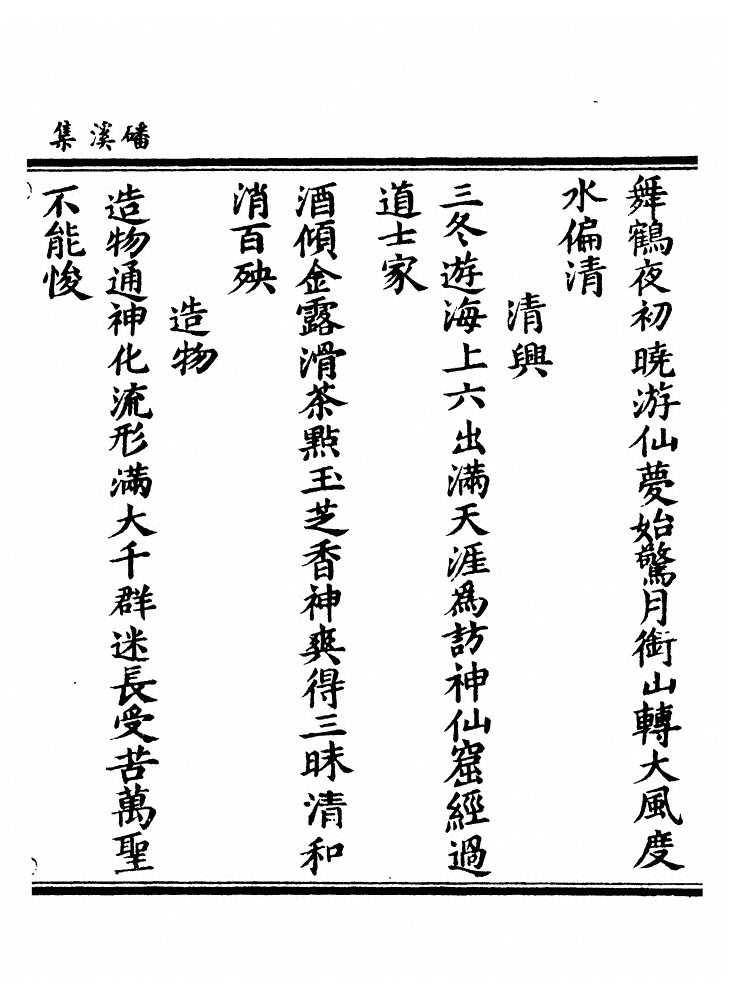 磻溪集
舞鶴夜初曉游仙夢始驚月銜山轉大風度
水偏清
清興
三冬遊海上六出滿天涯爲訪神仙窟經過
道士家
酒傾金露滑茶點玉芝香神爽得三昧清和
消百殃
造物
造物通神化流形滿大千群迷長受苦萬聖
不能悛